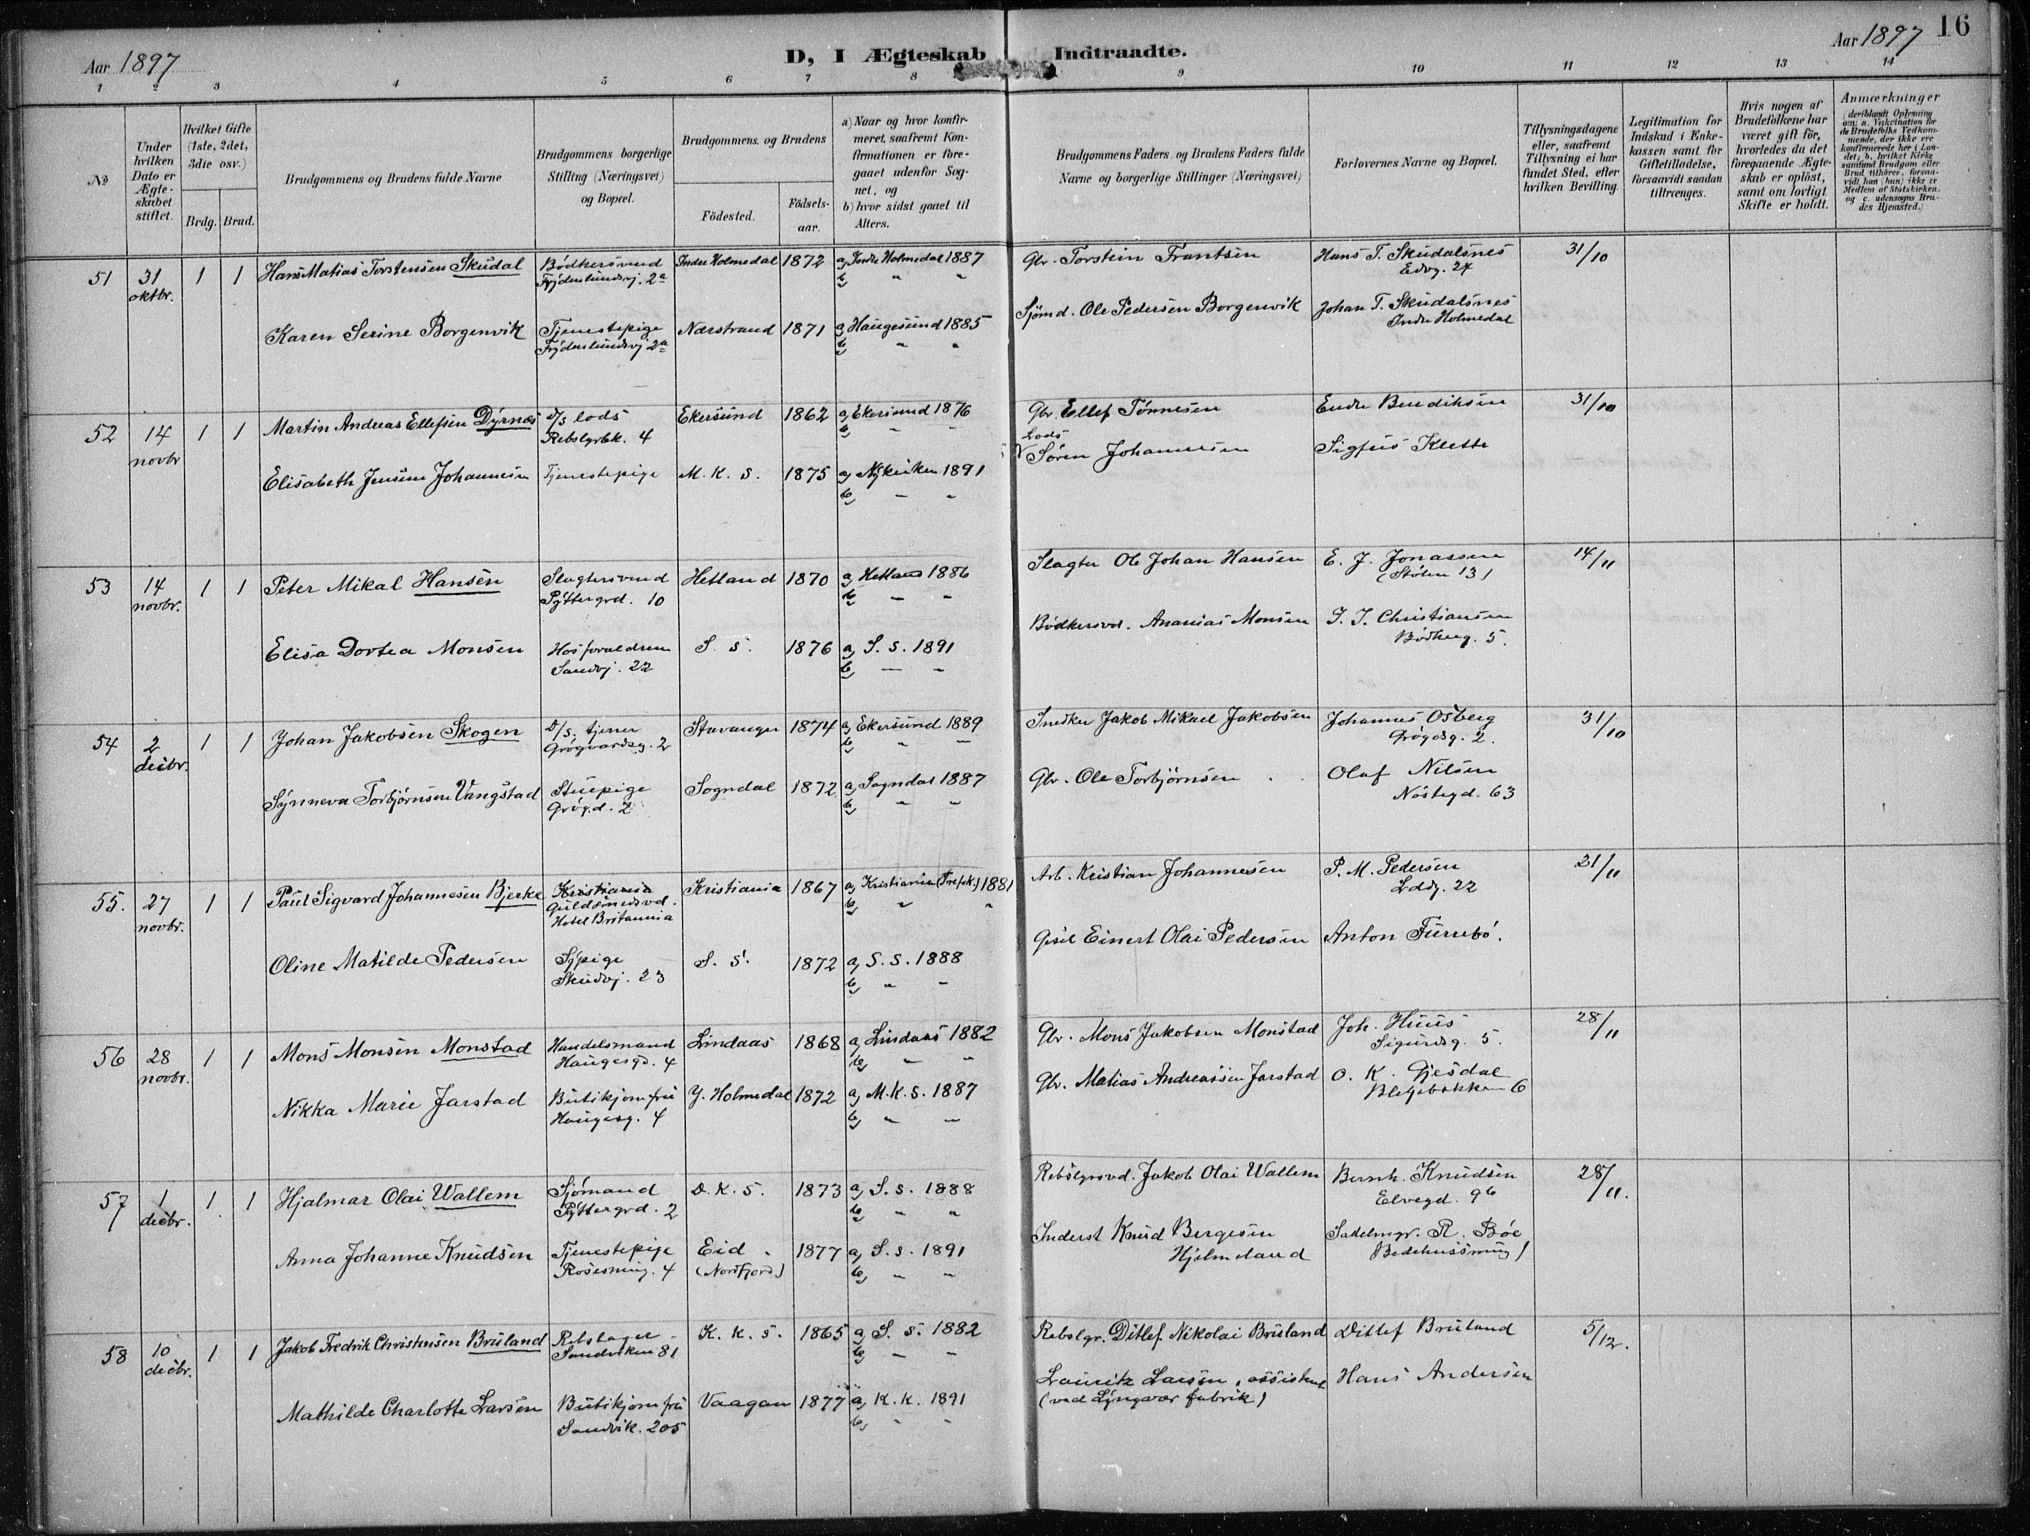 Aar 1897
D, I Ægteskab Indtraadte.
Aar 1897
16
1 2 3 4 5 6 7 8 9 10 11 12 13 14
No
Under hvilken Dato er Ægte-skabet stiftet.
Hvilket Gifte (1ste, 2det, 3die osv.)
Brdg. Brud.
Brudgommens og Brudens fulde Navne
Brudgommens borgerlige Stilling (Næringsvei) og Bopæl.
Brudgommens og Brudens
Födested.
Födsels-aar.
a) Naar og hvor konfir-meret, saafremt Kon-firmationen er fore-gaaet udenfor Sog-net, og
b) hvor sidst gaaet til Alters.
Brudgommens Faders og Brudens Faders fulde Navne og borgerlige Stillinger (Næringsvei)
Forlovernes Navne og Bopæl.
Tillysningsdagene eller, saafremt Tillysning ei har fundet Sted, efter hvilken Bevilling.
Legitimation for Indskud i Enke-kassen samt for Giftetilladelse, forsaavidt saadan tiltrænges.
Hvis nogen af Brudefolkene har været gift för, hvorledes da det foregaaende Ægte-skab er oplöst, samt om lovligt Skifte er holdt.
Anmærkninger
51 31 oktbr. 1 1 Hans Matias Torstensen Skudal Bödkersvend Frydenlundsvj. 2a Indre Holmedal 1872 a) Indre Holmedal 1887 b) " " Gbr. Torstein Frantsen Hans T. Skudalsnes 24 31/10
Karen Serine Borgenvik Tjenestepige Frydenlundsvj 2a Nærstrand 1871 a) Haugesund 1885 b) " " Sjömd. Ole Pedersen Borgenvik Johan T. Skudalsnes Indre Holmedal
52 14 novbr 1 1 Martin Andreas Ellefsen Dyrnæs D/s lods Rebslgrbk. 4 Ekersund 1862 a) Ekersund 1876 b) " " Gbr Ellef Tönnesen Endre Bendiksen 31/10
Elisabeth Jensine Johannesen Tjenestepige M. K. S. 1875 a) Nykirken 1891 b) " " Lods Sören Johannesen Sigfus Klette
53 14 novbr. 1 1 Peter Mikal Hansen Slagtersvend Pyttergrd. 10 Hetland 1870 a) Hetland 1886 b) " " Slagter Ole Johan Hansen E. J. Jonassen (Stölen 13) 14/11
Elisa Dortea Monsen Hos foraldrene Sandvj. 22 S. S. 1876 a) S. S. 1891 b) " " Bödkersvd. Ananias Monsen Christiansen Bödkerg. 5.
54 2 decbr. 1 1 Johan Jakobsen Skogen D/s. tjener 2 Stavanger 1874 a) Ekersund 1889 b) " " Snedker Jakob Mikael Jakobsen Johannes Osberg 2. 31/10
Synneva Torbjörnsen Vangstad Stuepige 2 Sogndal 1872 a) Sogndal 1887 b) " " Gbr. Ole Torbjörnsen Olaf Nilsen Nöstegd. 63
55. 27 novbr. 1 1 Paul Sigvard Johannesen Bjerke Kristiania Guldsmedsvd. Hotel Britannia Kristiania 1867 a) Kristiania (Trefsk.) 1881 b) " " Arb. Kristian Johannesen P. M. Pedersen 22 21/11
Oline Matilde Pedersen Sypige Skudvj. 23 S. S. 1872 a) S. S. 1888 b) " " Einert Olai Pedersen Anton Furrebö.
56 28 novbr. 1 1 Mons Monsen Monstad Handelsmand Haugesgd. 4 Lindaas 1868 a) Lindaas 1882 b) " " Gbr. Mons Jakobsen Monstad Joh. Huus Sigurdsg. 5. 28/11
Nikka Marie Jarstad Butikjomfru Haugesg. 4 Y. Holmedal 1872 a) M. K. S. 1887 b) " " Gbr. Matias Andreassen Jarstad O. K. Gjesdal Blegebakken 6
57 1 decbr. 1 1 Hjalmar Olai Wallem Sjömand Pyttergrd. 2 D. K. S. 1873 a) S. S. 1888 b) " " Rebslgrsvd. Jakob Olai Wallem Bernh. Knudsen Elvegd. 96 28/11.
Anna Johanne Knudsen Tjenestepige Rosesmug. 4 Eid (Nordfjord) 1877 a) S. S. 1891 b) " " Inderst Knud Bergesen Hjelmeland Sadelmgr. R. Böe Bedehussmug 1
58 10 decbr. 1 1 Jakob Fredrik Christensen Bruland Rebslager Sandviken 81 K. K. S. 1865 a) S. S. 1882 b) " " Rebslgr. Ditlef Nikolai Bruland Ditlef Bruland 5/12.
Mathilde Charlotte Larsen Butikjomfru Sandvik. 205 Vaagan 1877 a) K. K. 1891 b) " " Lauritz Larsen, assistent (ved Lyngvær fabrik) Hans Andersen